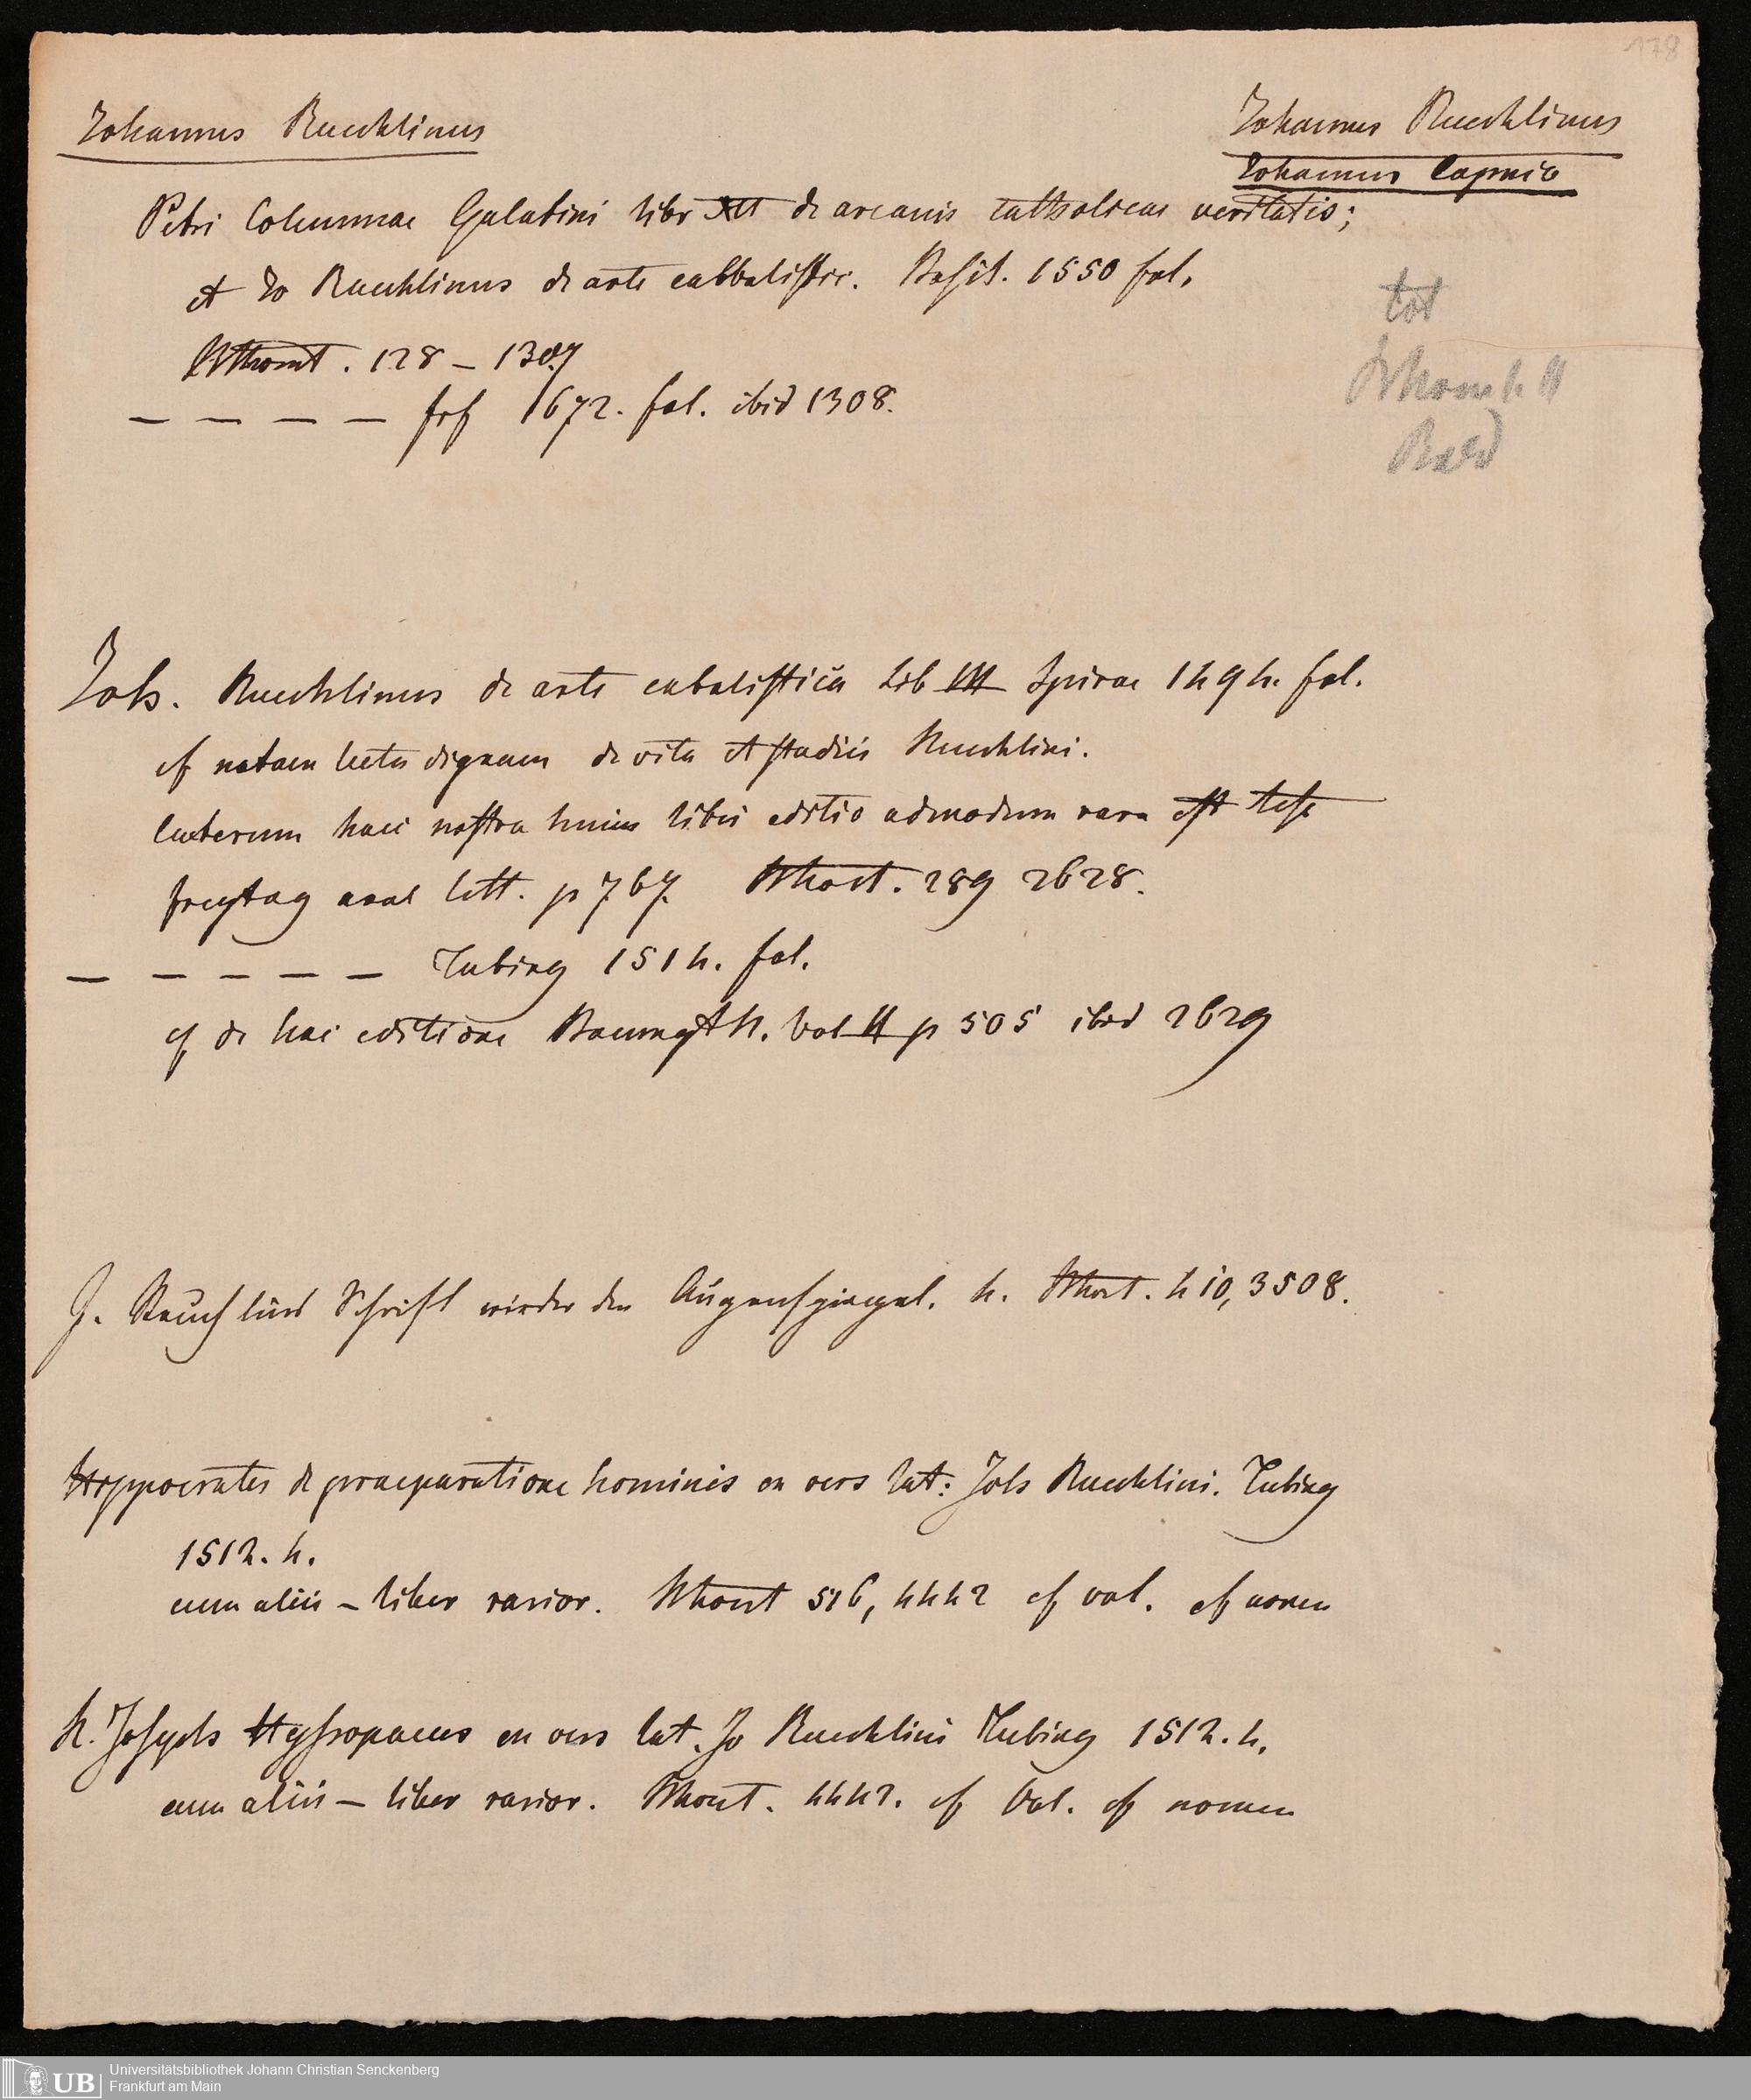 178
Johannes Reuchlinus
Johannes Reuchlinus
Johannes Capnio
Petri Columnae Galatini libr XII de arcanis catholicae veritatis;
et Jo Reuchlinus de arte cabbalistic. Basil. 1550 fol.
128 – 1307
— — — — frf 1672. fol. ibid 1308.
tot
Joh. Reuchlinus de arte cabalistica Lib III Spirae 1494. fol.
cf notam lectu dignam de vita et studiis Reuchlini.
Caeterum haec nostra huius libri editio admodum rara est teste
Freytag anal litt. p 767. 289 2628.
— — — — — Tubing 1514. fol.
cf de hac editione Baumgt H. Vol II p 505 ibid 2629
J. Reuchlins Schrift wieder den Augenspiegel. 4. 410, 3508.
Hyppocrates de praeparatione hominis en vers lat: Joh Reuchlini. Tubing
1512. 4.
cum aliis – liber rarior. 516, 4442 cf vol. cf nomen
R. Joseph Hyssopaeus en vers lat. Jo Reuchlini Tubing 1512. 4.
cum aliis – liber rarior. 4442. cf Vol. cf nomen
UB
Universitätsbibliothek Johann Christian Senckenberg
Frankfurt am Main